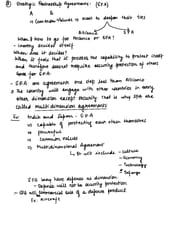 Strategic Partnership Agreements: (SPA)
A B
→ Common Values → want to deepen their ties
Alliance SPA
When & how to go for Alliance or SPA?
→ Country decides itself
When does it decide?
When it feels that it possess the capability to protect itself and therefore doesn't require security protection of others goes for SPA.
→ SPA are agreement one step less than Alliance
→ The country will engage with other countries in every other dimension except Security. That is why SPA are called multi dimension agreements
Ex: India and Japan - SPA
→ capable of protecting each other themselves
→ powerful
→ Common values
→ Multidimensional Agreement
→ It will include → Culture
→ Economy
→ Technology
→ Defense
SPA may have defense as dimension
- Defense will not be security protection
- It will commercial sale of a defense product
Ex: Aircraft